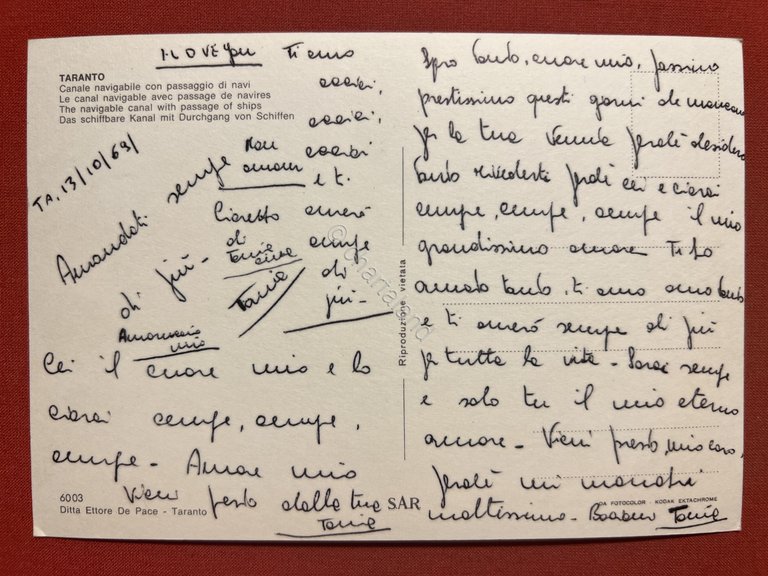 I LOVE You Ti amo
TARANTO
Canale navigabile con passaggio di navi
Le canal navigable avec passage de navires
The navigable canal with passage of ships
Das schiffbare Kanal mit Durchgang von Schiffen
TA, 13/10/69/
Amandoti sempre
di più -
amour
e t.
amerò
sempre
di
più -
di
Tania
Tania
Amoruccio
mio
Sei il cuore mio e lo
sarai sempre, sempre,
sempre - Amore mio
Vieni presto dalla tua
Tania
6003
Ditta Ettore De Pace - Taranto
S.A.R
Riproduzione vietata
© charta land
Spero tanto, cuore mio, passino
prestissimo questi giorni che mancano
per la tua venuta perché desidero
tanto rivederti perché sei e sarai
sempre, sempre, sempre il mio
grandissimo amore Ti ho
amato tanto, ti amo tanto
e ti amerò sempre di più
per tutta la vita - Sarai sempre
e solo tu il mio eterno
amore - Vieni presto, mio caro,
perché mi manchi
moltissimo - Tania
DA FOTOCOLOR - KODAK EKTACHROME